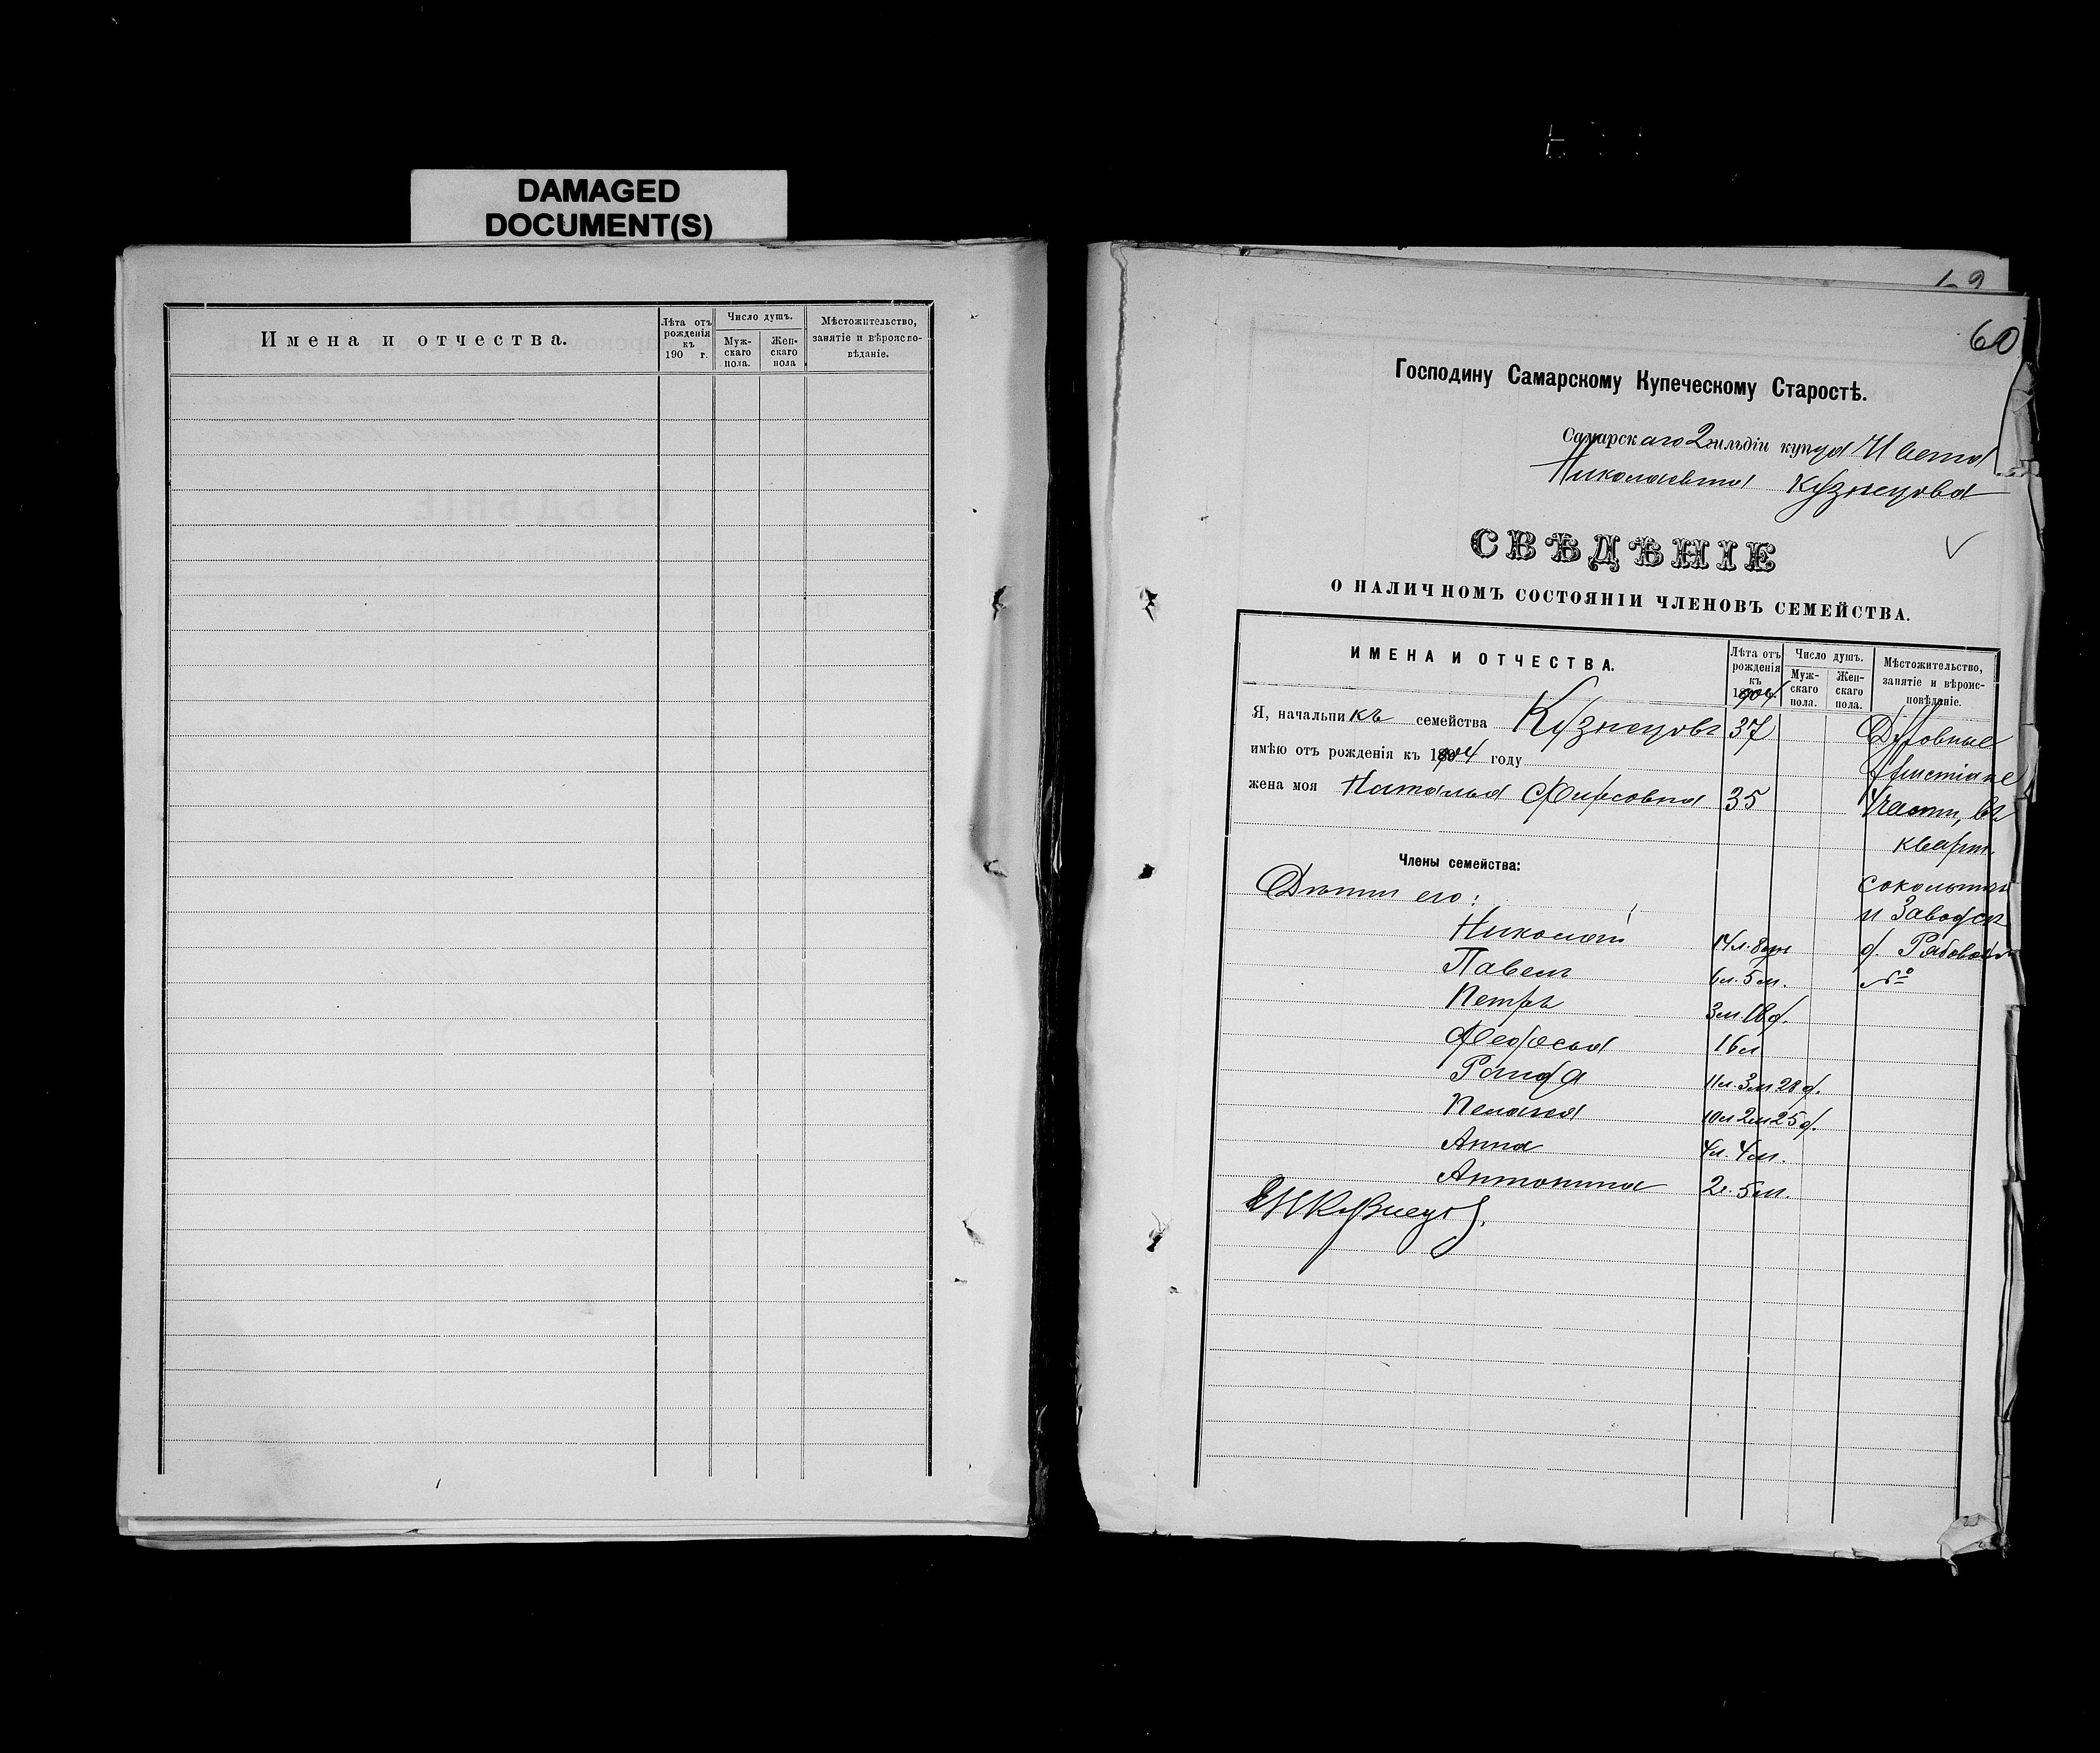 DAMAGED
DOCUMENT(S)
Имена и отчества.
Лѣта отъ рожденія къ 190 г.
Число душъ.
Муж-скаго пола.
Жен-скаго пола
Мѣстожительство, занятіе и вѣроиспо-вѣданіе.
60
Господину Самарскому Купеческому Старостѣ.
Самарскаго 2 гильдіи купца Ивана
Николаевича Кузнецова
СВѢДѢНІЕ
О НАЛИЧНОМЪ СОСТОЯНІИ ЧЛЕНОВЪ СЕМЕЙСТВА.
ИМЕНА И ОТЧЕСТВА.
Лѣта отъ рожденія къ 1904
Число душъ.
Муж-скаго пола.
Жен-скаго пола.
Мѣстожительство, занятіе и вѣроис-повѣданіе.
Я, начальникъ семейства Кузнецовъ 37 Духовные
имѣю отъ рожденія къ 1904 году христіане
жена моя Наталья Фирсовна 35 части, въ
кварт.
Члены семейства:
Дѣти его:
и Заводск
Николай 14 л. 8 м. д.
Павелъ 6 л. 5 м. №
Петръ 3 м. 18 д.
Федосья 16 л
Раида 11 л. 3 м 28 д.
Пелагея 10 л 2 м 25 д.
Анна 4 л. 4 м.
Антонина 2 г. 5 м.
Кузнецов.